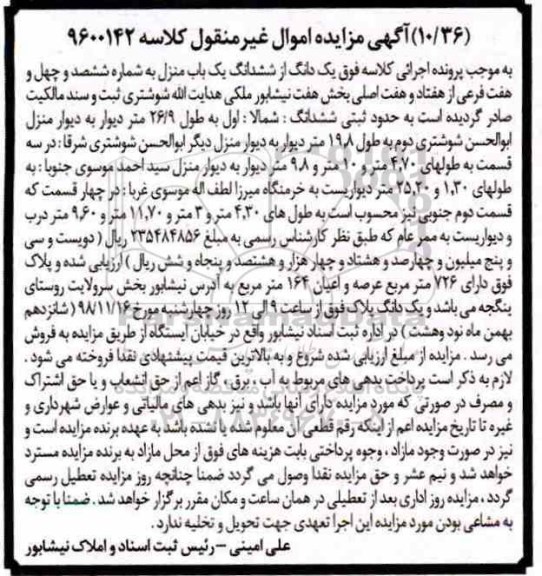 (۱۰/۳۶) آگهی مزایده اموال غیرمنقول کلاسه ۹۶۰۰۱۴۲
به موجب پرونده اجرائی کلاسه فوق یک دانگ از ششدانگ یک باب منزل به شماره ششصد و چهل و
هفت فرعی از هفتاد و هفت اصلی بخش هفت نیشابور ملکی هدایت الله شوشتری ثبت و سند مالکیت
صادر گردیده است به حدود ثبتی ششدانگ : شمالا : اول به طول ۲۶/۹ متر دیوار به دیوار منزل
ابوالحسن شوشتری دوم به طول ۱۹.۸ متر دیوار به دیوار منزل دیگر ابوالحسن شوشتری شرقا : در سه
قسمت به طولهای ۴.۷۰ متر و ۱۰ متر و ۹.۸ متر دیوار به دیوار منزل سید احمد موسوی جنوبا : به
طولهای ۱.۳۰ و ۲۵.۲۰ متر دیواریست به خرمنگاه میرزا لطف اله موسوی غربا : در چهار قسمت که
قسمت دوم جنوبی نیز محسوب است به طول های ۴.۳۰ متر و ۳ متر و ۱۱.۷۰ متر و ۹.۶۰ متر درب
و دیواریست به ممر عام که طبق نظر کارشناس رسمی به مبلغ ۲۳۵۴۸۴۸۵۶ ریال ( دویست و سی
و پنج میلیون و چهارصد و هشتاد و چهار هزار و هشتصد و پنجاه و شش ریال ) ارزیابی شده و پلاک
فوق دارای ۷۲۶ متر مربع عرصه و اعیان ۱۶۴ متر مربع به آدرس نیشابور بخش سرولایت روستای
ینگجه می باشد و یک دانگ پلاک فوق از ساعت ۹ الی ۱۲ روز چهارشنبه مورخ ۹۸/۱۱/۱۶ ( شانزدهم
بهمن ماه نود وهشت ) در اداره ثبت اسناد نیشابور واقع در خیابان ایستگاه از طریق مزایده به فروش
می رسد . مزایده از مبلغ ارزیابی شده شروع و به بالاترین قیمت پیشنهادی نقدا فروخته می شود .
لازم به ذکر است پرداخت بدهی های مربوط به آب ، برق ، گاز اعم از حق انشعاب و یا حق اشتراک
و مصرف در صورتی که مورد مزایده دارای آنها باشد و نیز بدهی های مالیاتی و عوارض شهرداری و
غیره تا تاریخ مزایده اعم از اینکه رقم قطعی آن معلوم شده یا نشده باشد به عهده برنده مزایده است و
نیز در صورت وجود مازاد ، وجوه پرداختی بابت هزینه های فوق از محل مازاد به برنده مزایده مسترد
خواهد شد و نیم عشر و حق مزایده نقدا وصول می گردد ضمنا چنانچه روز مزایده تعطیل رسمی
گردد ، مزایده روز اداری بعد از تعطیلی در همان ساعت و مکان مقرر برگزار خواهد شد . ضمنا با توجه
به مشاعی بودن مورد مزایده این اجرا تعهدی جهت تحویل و تخلیه ندارد .
علی امینی – رئیس ثبت اسناد و املاک نیشابور